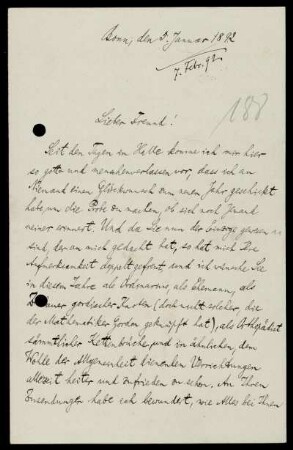 Bonn, den 5. Januar 1892
7. Febr. 92
188
Lieber Freund!
Seit den Tagen in Halle komme ich mir hier
so gott- und menschenverlassen vor, dass ich an
Niemand einen Glückwunsch zum neuen Jahr geschickt
habe, um die Probe zu machen, ob sich noch Jemand
meiner erinnert. Und da Sie nun der einzige gewesen
sind, der an mich gedacht hat, so hat mich Ihre
Aufmerksamkeit doppelt gefreut, und ich wünsche Sie
in diesem Jahre als Ordinarius, als Ehemann, als
gordischer Knoten (doch nicht solcher, die
der Mathematiker Gordan geknüpft hat), als
sämmtlicher Kettenbrüche, und in ähnlichen, dem
Wohle der Allgemeinheit dienenden Verrichtungen
allezeit heiter und zufrieden zu sehen. An Ihren
Zusendungen habe ich bewundert, wie Alles bei Ihnen